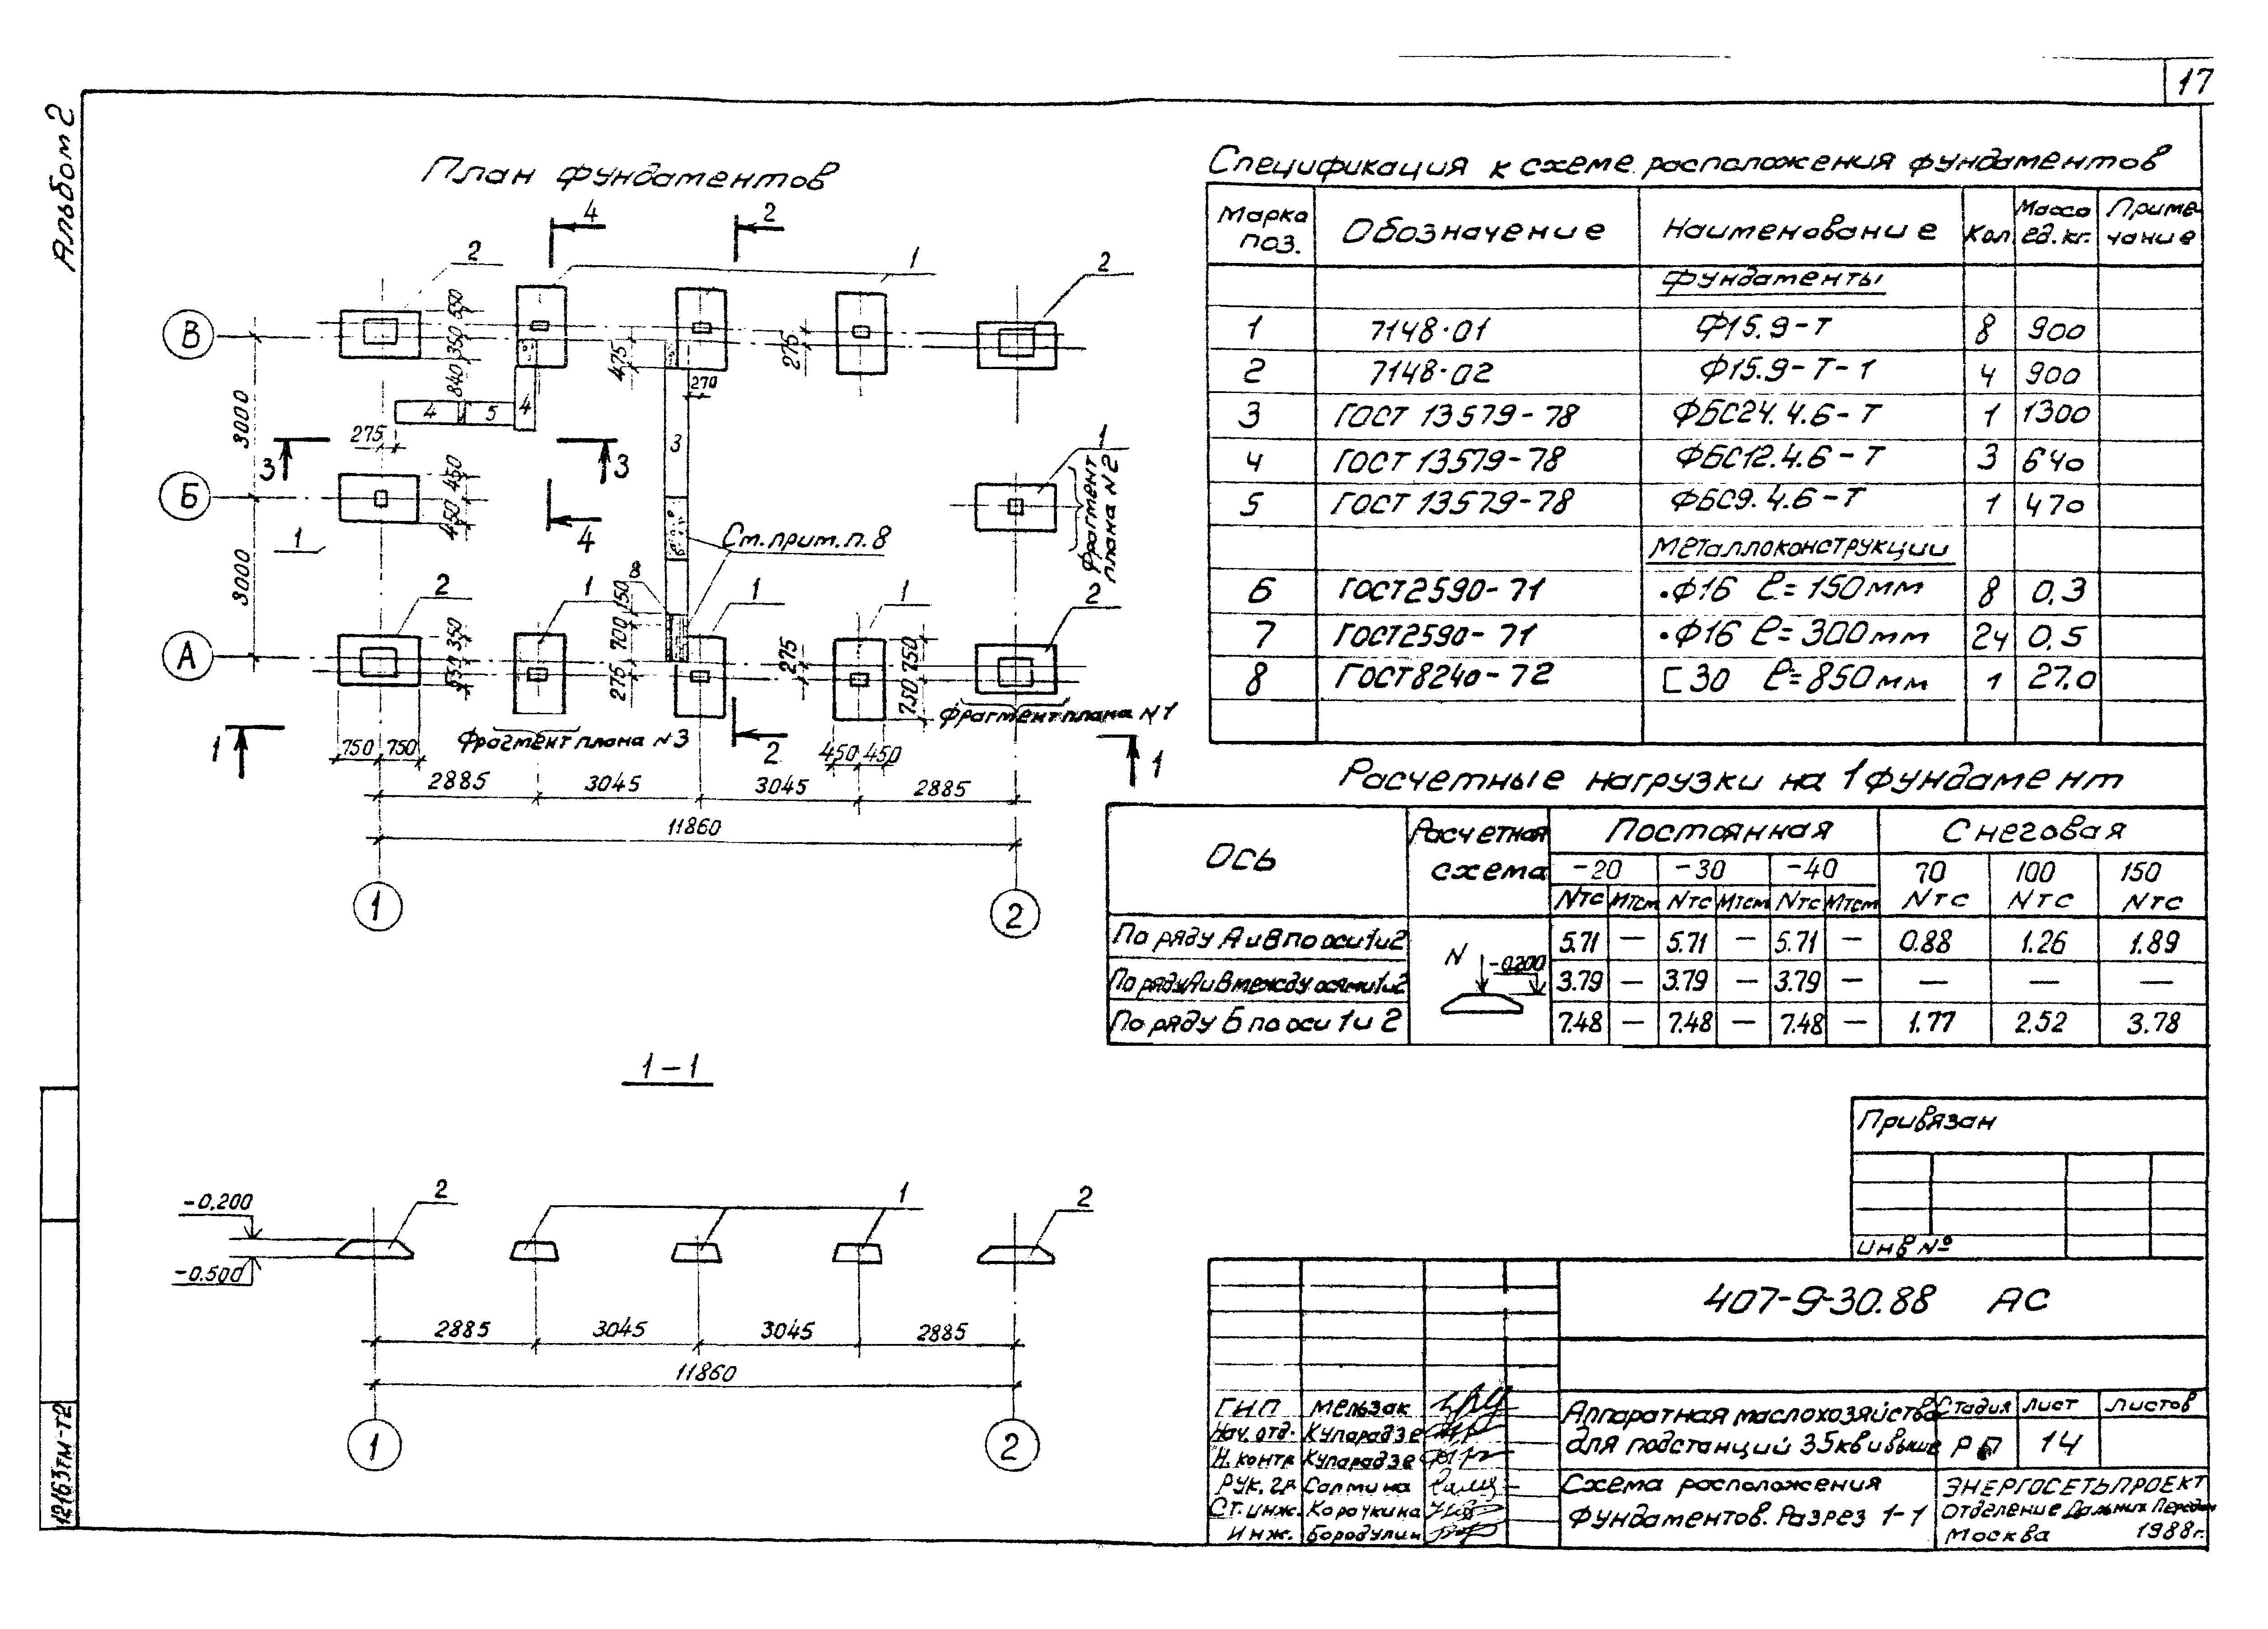 17
Альбом 2
План фундаментов
4 2
2 1 2
В
550
350
840
475
275
270
4 5 4
3
3000
275
3 3
1
Б
450
450
4
Фрагмент
плана N2
1
См. прим. п. 8
3000
8
2 1 1 1 2
150
700
275
А
350
550
275
750
750
Фрагмент плана N1
Фрагмент плана N3
1 2 1
750 750 450 450
2885 3045 3045 2885
11860
1 2
1-1
-0.200
-0.500
2 1 2
2885 3045 3045 2885
11860
1 2
Спецификация к схеме расположения фундаментов
Марка поз. Обозначение Наименование Кол Масса ед. кг. Примечание
Фундаменты
1 7148-01 Ф15.9-Т 8 900
2 7148-02 Ф15.9-Т-1 4 900
3 ГОСТ 13579-78 ФБС24.4.6-Т 1 1300
4 ГОСТ 13579-78 ФБС12.4.6-Т 3 640
5 ГОСТ 13579-78 ФБС9.4.6-Т 1 470
Металлоконструкции
6 ГОСТ2590-71 •Ф16 ℓ=150мм 8 0.3
7 ГОСТ2590-71 •Ф16 ℓ=300мм 24 0.5
8 ГОСТ8240-72 [30 ℓ=850мм 1 27.0
Расчетные нагрузки на 1 фундамент
Ось Расчетная схема Постоянная Снеговая
-20 -30 -40 70 100 150
Nтс Мтсм Nтс Мтсм Nтс Мтсм Nтс Nтс Nтс
По ряду А и В по оси 1 и 2 5.71 — 5.71 — 5.71 — 0.88 1.26 1.89
N -0.200
По ряду А и В между осями 1 и 2 3.79 — 3.79 — 3.79 — — — —
По ряду Б по оси 1 и 2 7.48 — 7.48 — 7.48 — 1.77 2.52 3.78
Привязан
Инв №
407-9-30.88 АС
ГИП Мельзак
Нач. отд. Купарадзе
Н. контр Купарадзе
Рук. гр Салтина
Ст. инж. Корочкина
Инж. Бородулин
Аппаратная маслохозяйства
для подстанций 35кв и выше
Стадия Лист Листов
РП 14
Схема расположения
фундаментов. Разрез 1-1
ЭНЕРГОСЕТЬПРОЕКТ
Отделение Дальних Передач
Москва 1988г.
12163тм-т2